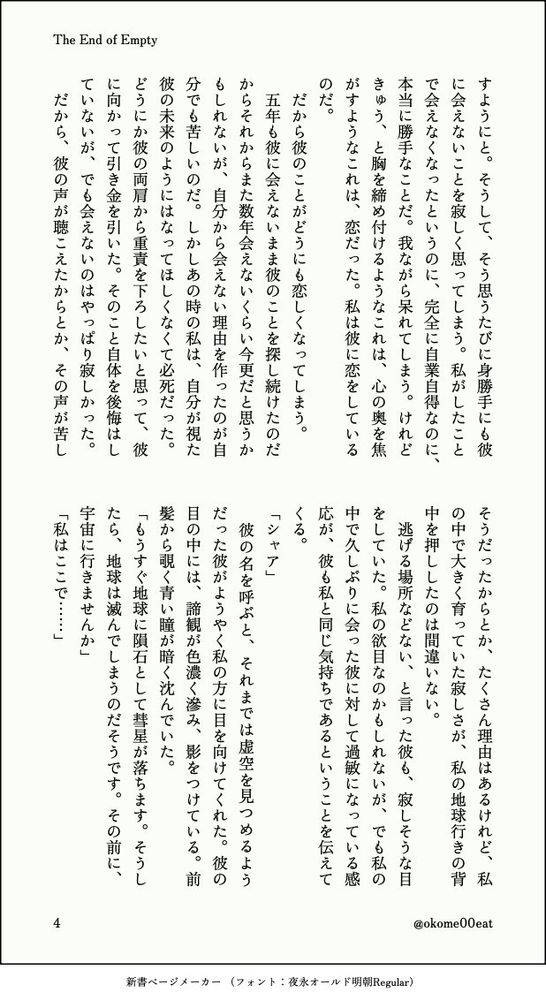 The End of Empty
すようにと。そうして、そう思うたびに身勝手にも彼
に会えないことを寂しく思ってしまう。私がしたこと
で会えなくなったというのに、完全に自業自得なのに、
本当に勝手なことだ。我ながら呆れてしまう。けれど
きゅう、と胸を締め付けるようなこれは、心の奥を焦
がすようなこれは、恋だった。私は彼に恋をしている
のだ。
だから彼のことがどうにも恋しくなってしまう。
五年も彼に会えないまま彼のことを探し続けたのだ
からそれからまた数年会えないくらい今更だと思うか
もしれないが、自分から会えない理由を作ったのが自
分でも苦しいのだ。しかしあの時の私は、自分が視た
彼の未来のようにはなってほしくなくて必死だった。
どうにか彼の両肩から重責を下ろしたいと思って、彼
に向かって引き金を引いた。そのこと自体を後悔はし
ていないが、でも会えないのはやっぱり寂しかった。
だから、彼の声が聴こえたからとか、その声が苦し
そうだったからとか、たくさん理由はあるけれど、私
の中で大きく育っていた寂しさが、私の地球行きの背
中を押ししたのは間違いない。
逃げる場所などない、と言った彼も、寂しそうな目
をしていた。私の欲目なのかもしれないが、でも私の
中で久しぶりに会った彼に対して過敏になっている感
応が、彼も私と同じ気持ちであるということを伝えて
くる。
「シャア」
彼の名を呼ぶと、それまでは虚空を見つめるよう
だった彼がようやく私の方に目を向けてくれた。彼の
目の中には、諦観が色濃く滲み、影をつけている。前
髪から覗く青い瞳が暗く沈んでいた。
「もうすぐ地球に隕石として彗星が落ちます。そうし
たら、地球は滅んでしまうのだそうです。その前に、
宇宙に行きませんか」
「私はここで……」
4
@okome00eat
新書ページメーカー （フォント：夜永オールド明朝Regular）